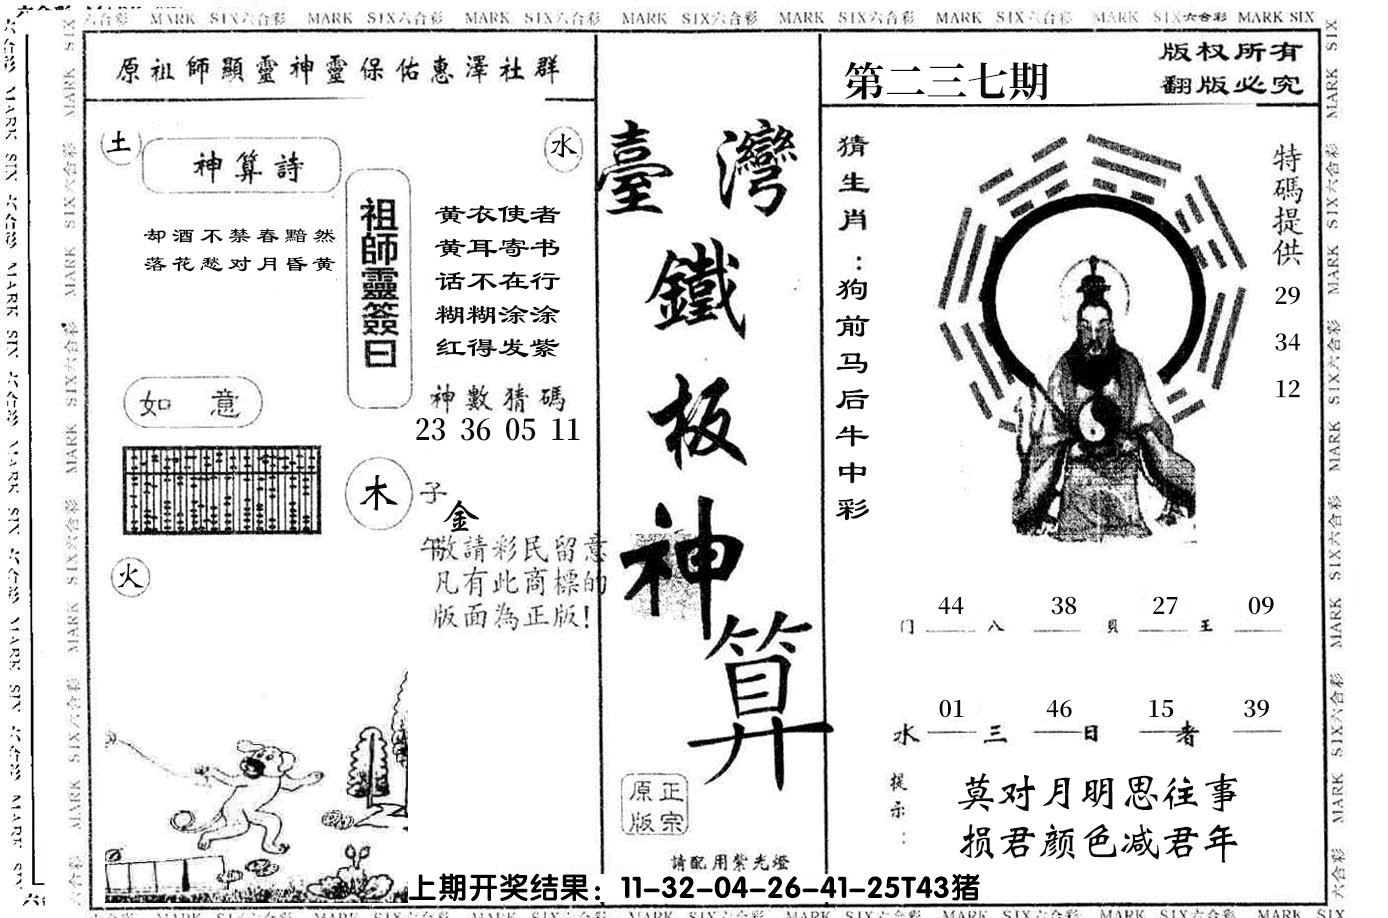 六合彩 MARK SIX六合彩 MARK SIX六合彩 MARK SIX六合彩 MARK SIX六合彩 MARK SIX六合彩 MARK SIX六合彩 MARK SIX六合彩 MARK SIX
原祖師顯靈神靈保佑惠澤社群
土
神算詩
水
却酒不禁春黯然
落花愁对月昏黄
祖師靈簽曰
黄衣使者
黄耳寄书
话不在行
糊糊涂涂
红得发紫
神數猜碼
23 36 05 11
如意
木
子
金
午
敬請彩民留意
凡有此商標的
版面為正版!
火
臺灣
鐵
板
神
算
正宗
原版
請配用紫光燈
第二三七期
版权所有
翻版必究
猜生肖:狗前马后牛中彩
特碼提供
29
34
12
44 38 27 09
门 八 貝 王
01 46 15 39
水 三 日 者
提示:
莫对月明思往事
损君颜色减君年
上期开奖结果：11-32-04-26-41-25T43猪